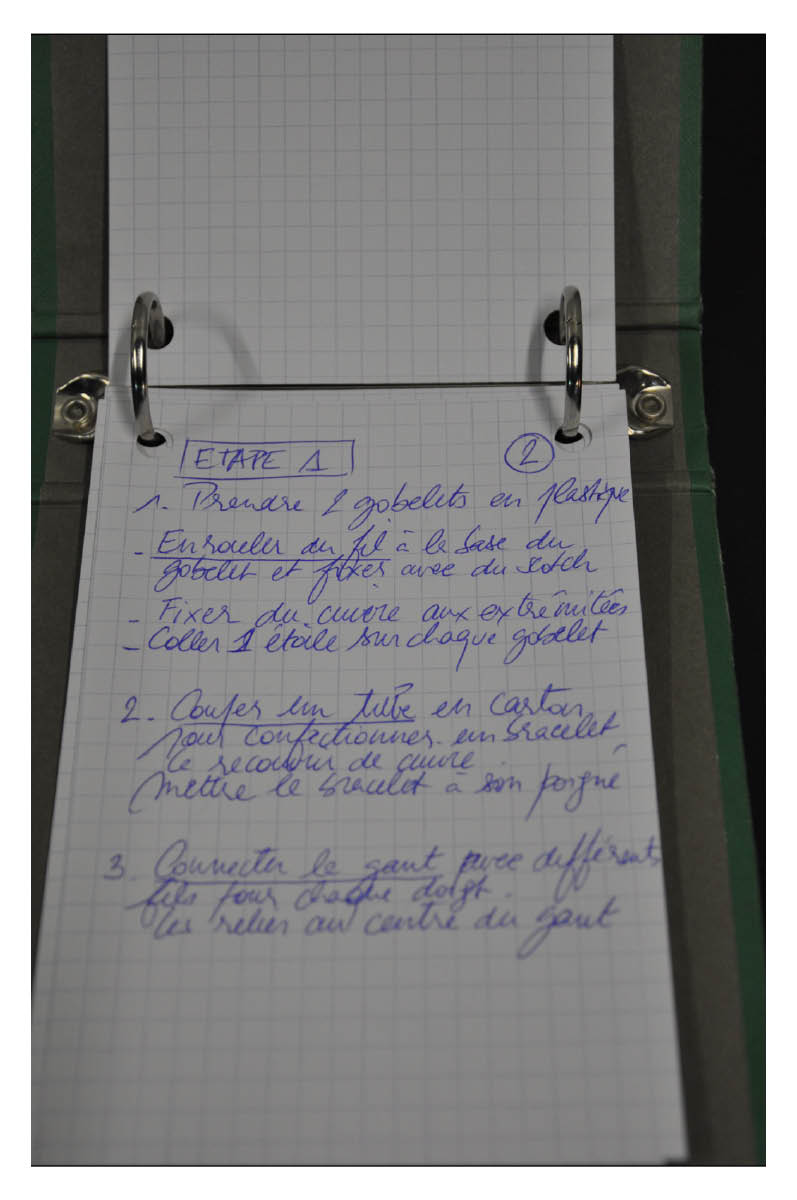 ETAPE 1
2
1. Prendre 2 gobelets en plastique
- Enrouler du fil à la base du
gobelet et fixer avec du scotch
- Fixer du cuivre aux extrémitées
- Coller 1 étoile sur chaque gobelet
2. Couper un tube en carton
pour confectionner un bracelet
le recouvrir de cuivre
mettre le bracelet à son poigné
3. Connecter le gant avec différents
fils pour chaque doigt.
les relier au centre du gant